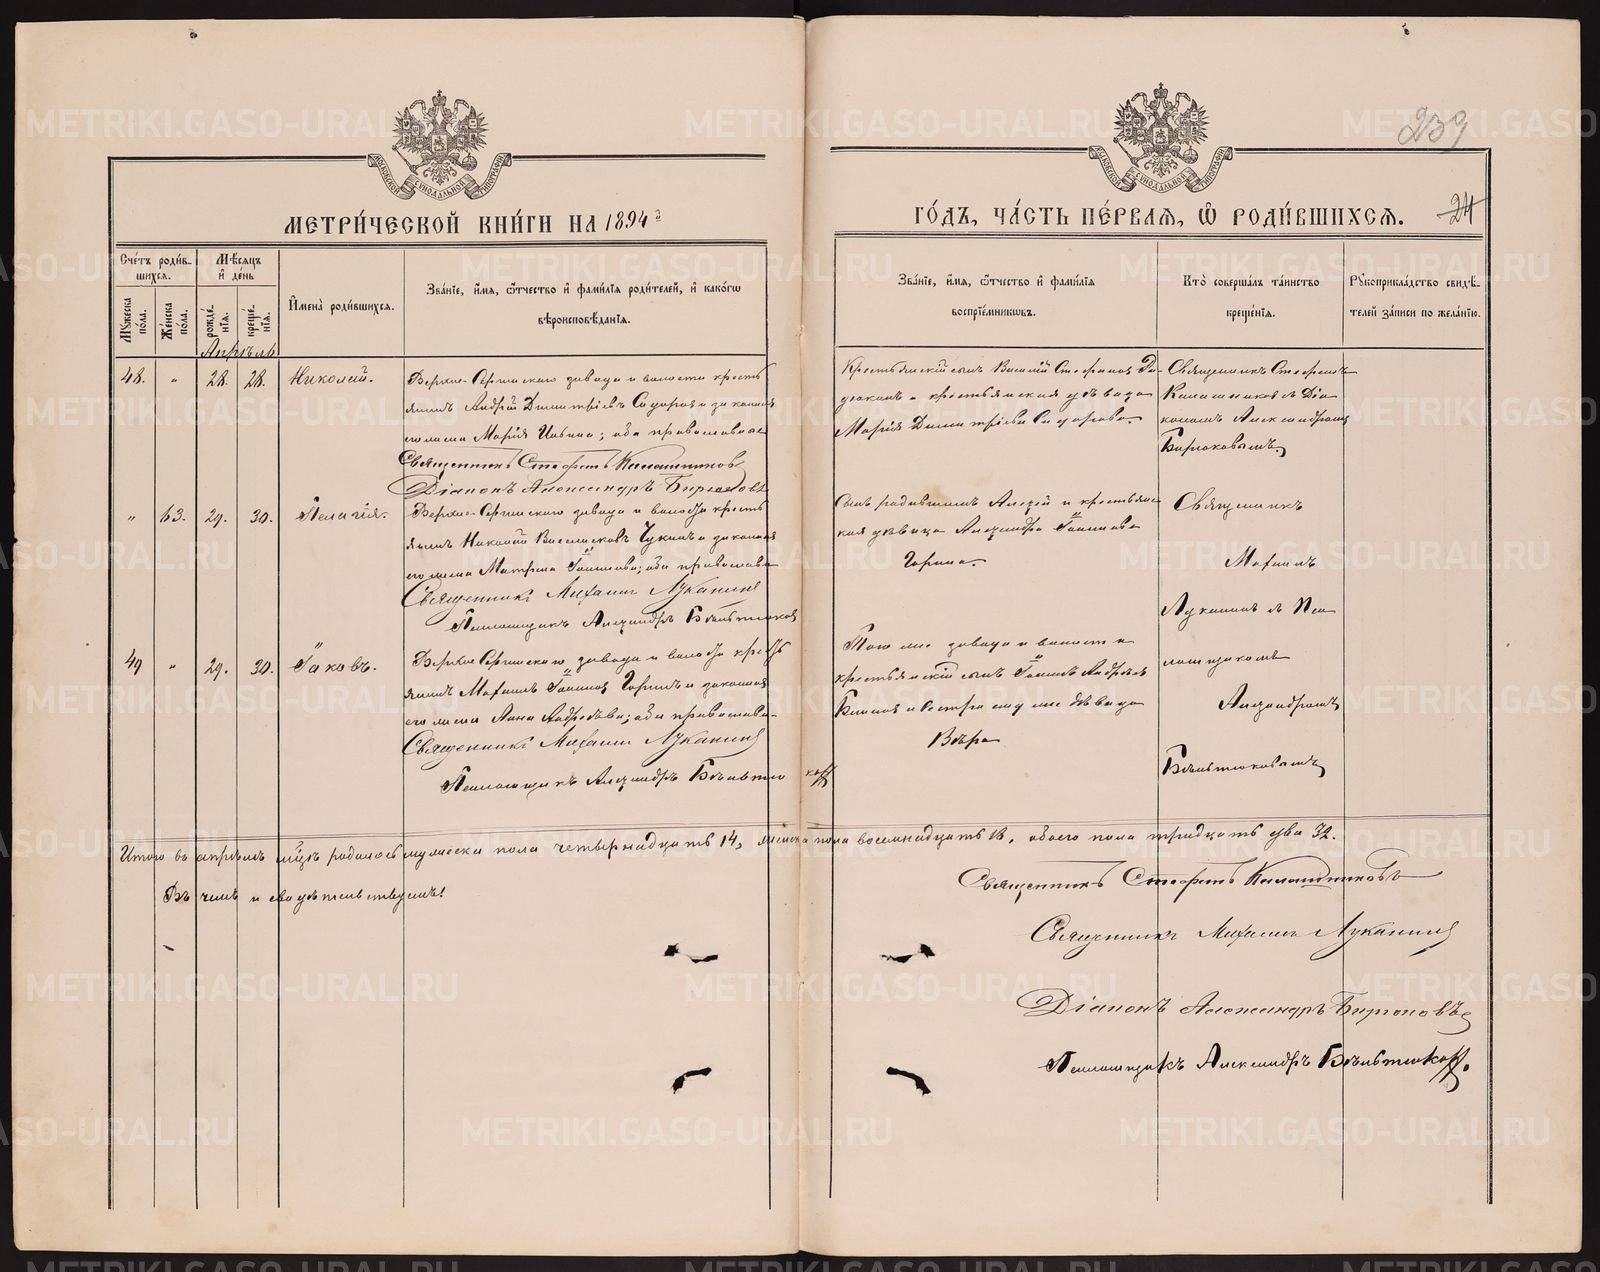 239
МЕТРИ́ЧЕСКОЙ КНИ́ГИ НА 1894
ГО́ДЪ, ЧА́СТЬ ПЕ́РВАЯ, Ѽ РОДИ́ВШИХСЯ.
24
Сче́тъ роди́в-
шихся.
Мѣ́сяцъ
и҆ де́нь
Мꙋ́жеска
по́ла.
Же́нска
по́ла.
рожде́-
нія.
креще́-
нія.
И҆мена̀ роди́вшихся.
Зва́ніе, и҆́мя, ѻ҆́тчество и҆ фами́лія роди́телей, и҆ како́гѡ
вѣроисповѣ́данія.
Зва́ніе, и҆́мя, ѻ҆́тчество и҆ фами́лія
воспріе́мникѡвъ.
Кто̀ соверша́лъ та́инство
креще́нія.
Рꙋкоприкла́дство свидѣ́-
телей за́писи по жела́нію.
Апрѣль
48. " 28. 28. Николай.
Верхне-Сергинскаго завода и волости кресть
янинъ Андрей Димитріевъ Сидоровъ и законная
его жена Марія Ивановна; оба православные
Священникъ Стефанъ Калашниковъ
Діаконъ Александръ Бирюковъ
Крестьянскій сынъ Василій Стефановъ
и крестьянская дѣвица
Марія Димитріева Сидорова.
Священникъ Стефанъ
Калашниковъ съ Діа
кономъ Александромъ
Бирюковымъ.
" 63. 29. 30. Пелагія.
Верхне-Сергинскаго завода и волости кресть
янинъ Николай Чукинъ и законная
его жена Матрона Іоаннова; оба православн
Священникъ Михаилъ Луканинъ
Псаломщикъ Александръ
Сынъ Андрей и крестьянс
кая дѣвица Александра Іоаннова
Горина.
Священникъ
Михаилъ
Луканинъ съ Пса
ломщикомъ
Александромъ
49 " 29. 30. Іаковъ.
Верхне-Сергинскаго завода и волости кресть
янинъ Михаилъ Іоанновъ Горинъ и законная
его жена Анна Андреева; оба православн-
Священникъ Михаилъ Луканинъ
Псаломщикъ Александръ
Того же завода и волости
крестьянскій сынъ Іоаннъ Андреевъ
и сестра ему же дѣвица
Вѣра
Итого въ апрѣлѣ мѣсяцѣ родилось мужеска пола четырнадцать 14, женска пола восемнадцать 18, обоего пола тридцать два 32.
Въ чемъ и свидѣтельствуемъ!
Священникъ Стефанъ Калашниковъ
Священникъ Михаилъ Луканинъ
Діаконъ Александръ Бирюковъ
Псаломщикъ Александръ
METRIKI.GASO-URAL.RU